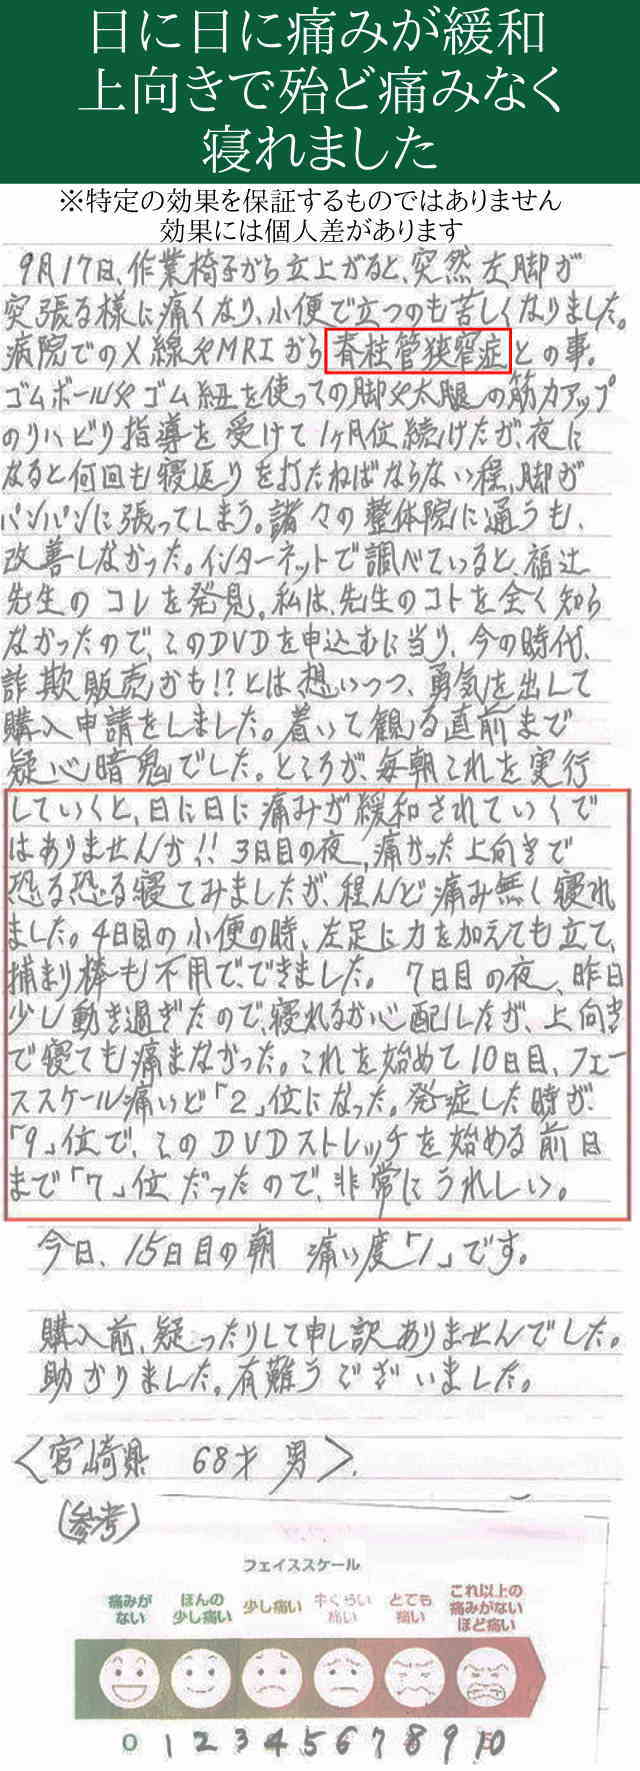 日に日に痛みが緩和
上向きで殆ど痛みなく
寝れました
※特定の効果を保証するものではありません
効果には個人差があります
9月17日、作業椅子から立上がると、突然左脚が
突張る様に痛くなり、小便で立つのも苦しくなりました。
病院でのX線やMRIから脊柱管狭窄症との事。
ゴムボールやゴム紐を使っての脚や太腿の筋力アップ
のリハビリ指導を受けて1ヶ月位続けたが、夜に
なると何回も寝返りを打たねばならない程、脚が
パンパンに張ってしまう。諸々の整体院に通うも、
改善しなかった。インターネットで調べていると、福辻
先生のコレを発見。私は、先生のコトを全く知ら
なかったので、このDVDを申込むに当り、今の時代、
詐欺販売かも!?とは想いつつ、勇気を出して
購入申請をしました。着いて観る直前まで
疑心暗鬼でした。ところが、毎朝これを実行
していくと、日に日に痛みが緩和されていくで
はありませんか!! 3日目の夜、痛かった上向きで
恐る恐る寝てみましたが、程んど痛み無く寝れ
ました。4日目の小便の時、左足に力を加えても立て、
捕まり棒も不用で、できました。 7日目の夜、昨日
少し動き過ぎたので、寝れるか心配したが、上向き
で寝ても痛まなかった。これを始めて10日目、フェー
ススケール痛いど「2」位になった。発症した時が、
「9」位で、このDVDストレッチを始める前日
まで「7」位だったので、非常にうれしい。
今日、15日目の朝 痛い度「1」です。
購入前、疑ったりして申し訳ありませんでした。
助かりました。有難うございました。
<宮崎県 68才 男>.
(参考)
フェイススケール
痛みが
ない
ほんの
少し痛い
少し痛い
中くらい
痛い
とても
痛い
これ以上の
痛みがない
ほど痛い
0 1 2 3 4 5 6 7 8 9 10